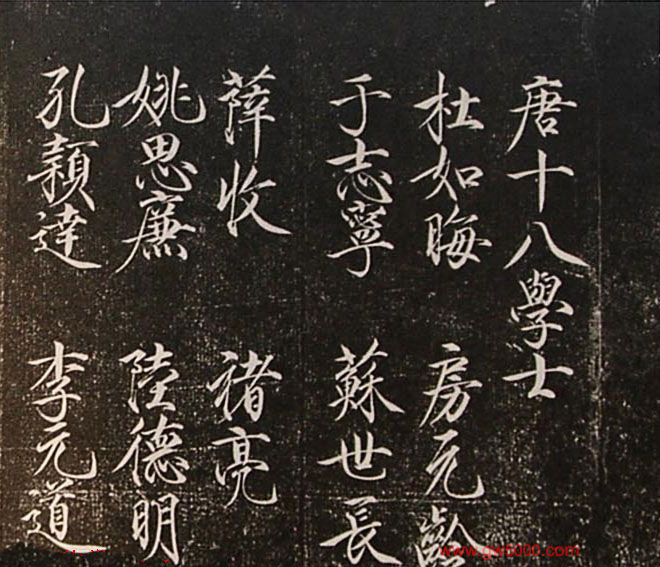 唐十八學士
杜如晦 房元齡
于志寧 蘇世長
薛收 褚亮
姚思廉 陸德明
孔穎達 李元道
www.gw5000.com